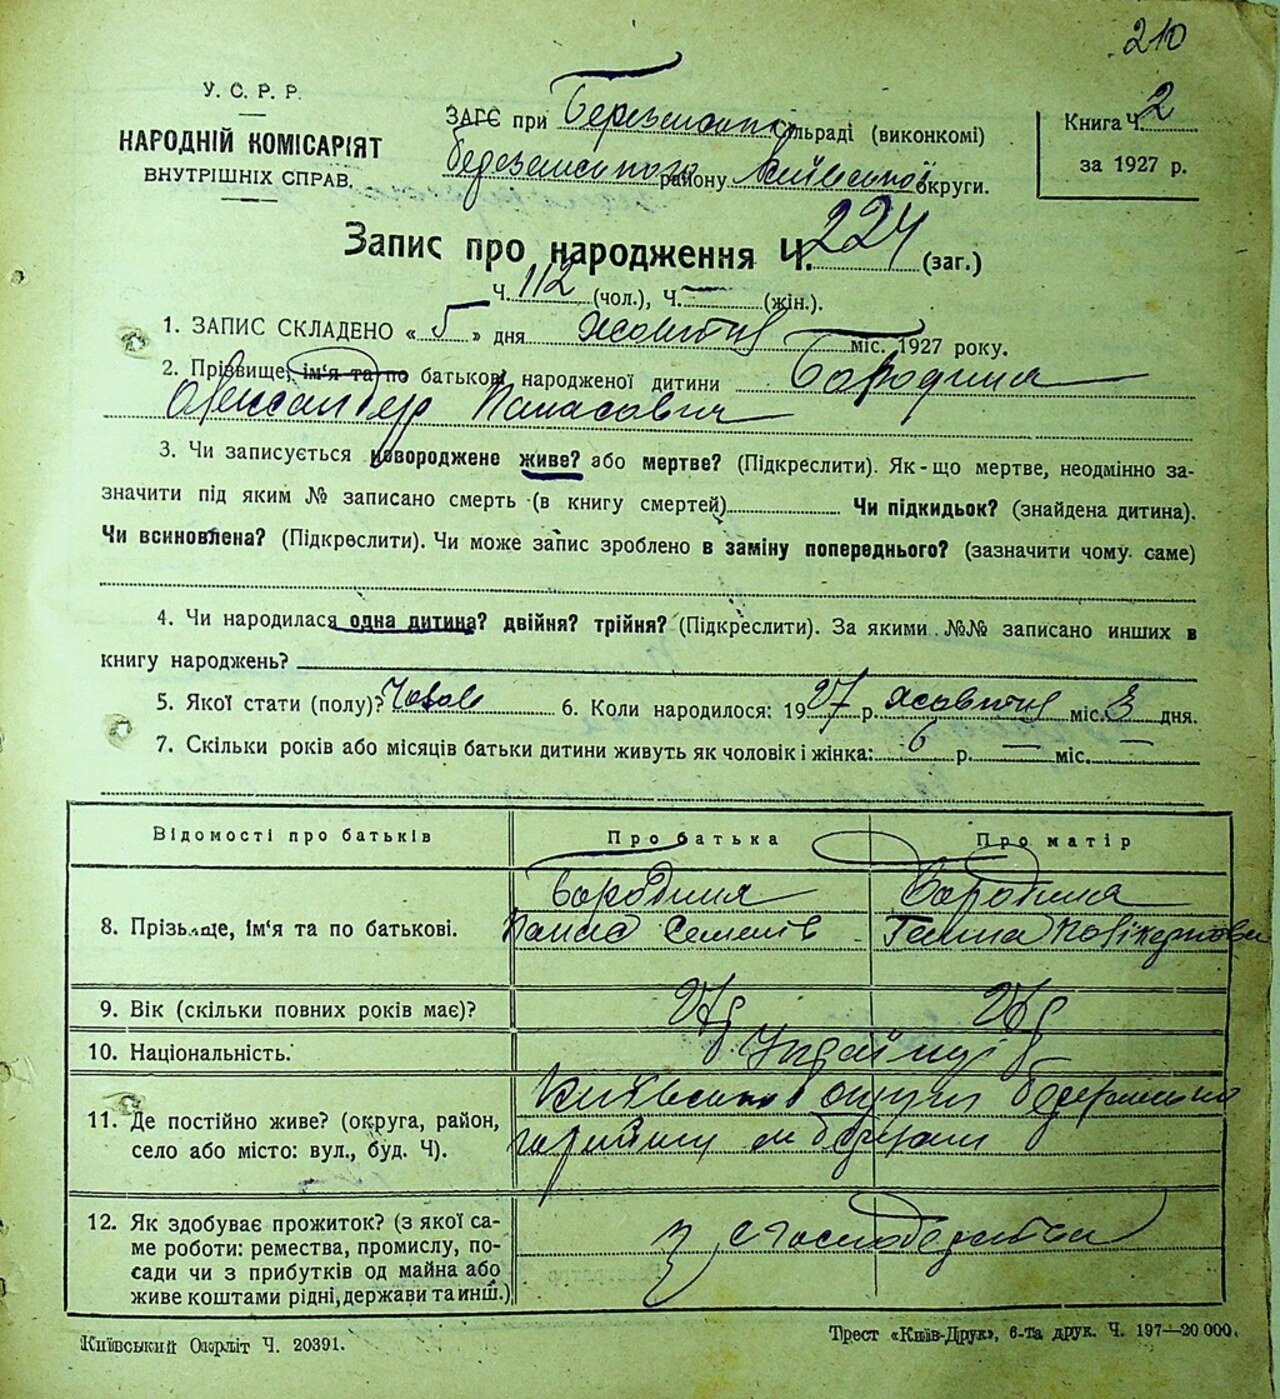 210
У. С. Р. Р.
НАРОДНІЙ КОМІСАРІЯТ
ВНУТРІШНІХ СПРАВ.
ЗАГС при Березанській сільраді (виконкомі)
Березанського району Київської округи.
Книга Ч. 2
за 1927 р.
Запис про народження Ч. 224 (заг.)
Ч. 112 (чол.), Ч. — (жін.).
1. ЗАПИС СКЛАДЕНО « 5 » дня Жовтня міс. 1927 року.
2. Прізвище, ім'я та по батькові народженої дитини Бородиня
Олександер Панасович
3. Чи записується новороджене живе? або мертве? (Підкреслити). Як-що мертве, неодмінно за-
значити під яким № записано смерть (в книгу смертей) Чи підкидьок? (знайдена дитина).
Чи всиновлена? (Підкреслити). Чи може запис зроблено в заміну попереднього? (зазначити чому саме)
4. Чи народилася одна дитина? двійня? трійня? (Підкреслити). За якими №№ записано инших в
книгу народжень?
5. Якої стати (полу)? Чолов 6. Коли народилося: 1927 р. Жовтня міс. 3 дня.
7. Скільки років або місяців батьки дитини живуть як чоловік і жінка: 6 р. — міс. —
Відомості про батьків Про батька Про матір
8. Прізьище, ім'я та по батькові. Бородиня Бородиня
Панас Семенів Ганна
9. Вік (скільки повних років має)? 27 р 26 р
10. Національність. Українці
11. Де постійно живе? (округа, район,
село або місто: вул., буд. Ч).
Київської округи Березанського
району м Березані
12. Як здобуває прожиток? (з якої са-
ме роботи: ремества, промислу, по-
сади чи з прибутків од майна або
живе коштами рідні, держави та инш.)
З с господарства
Київський Окрліт Ч. 20391.
Трест «Київ-Друк», 6-та друк. Ч. 197—20 000.